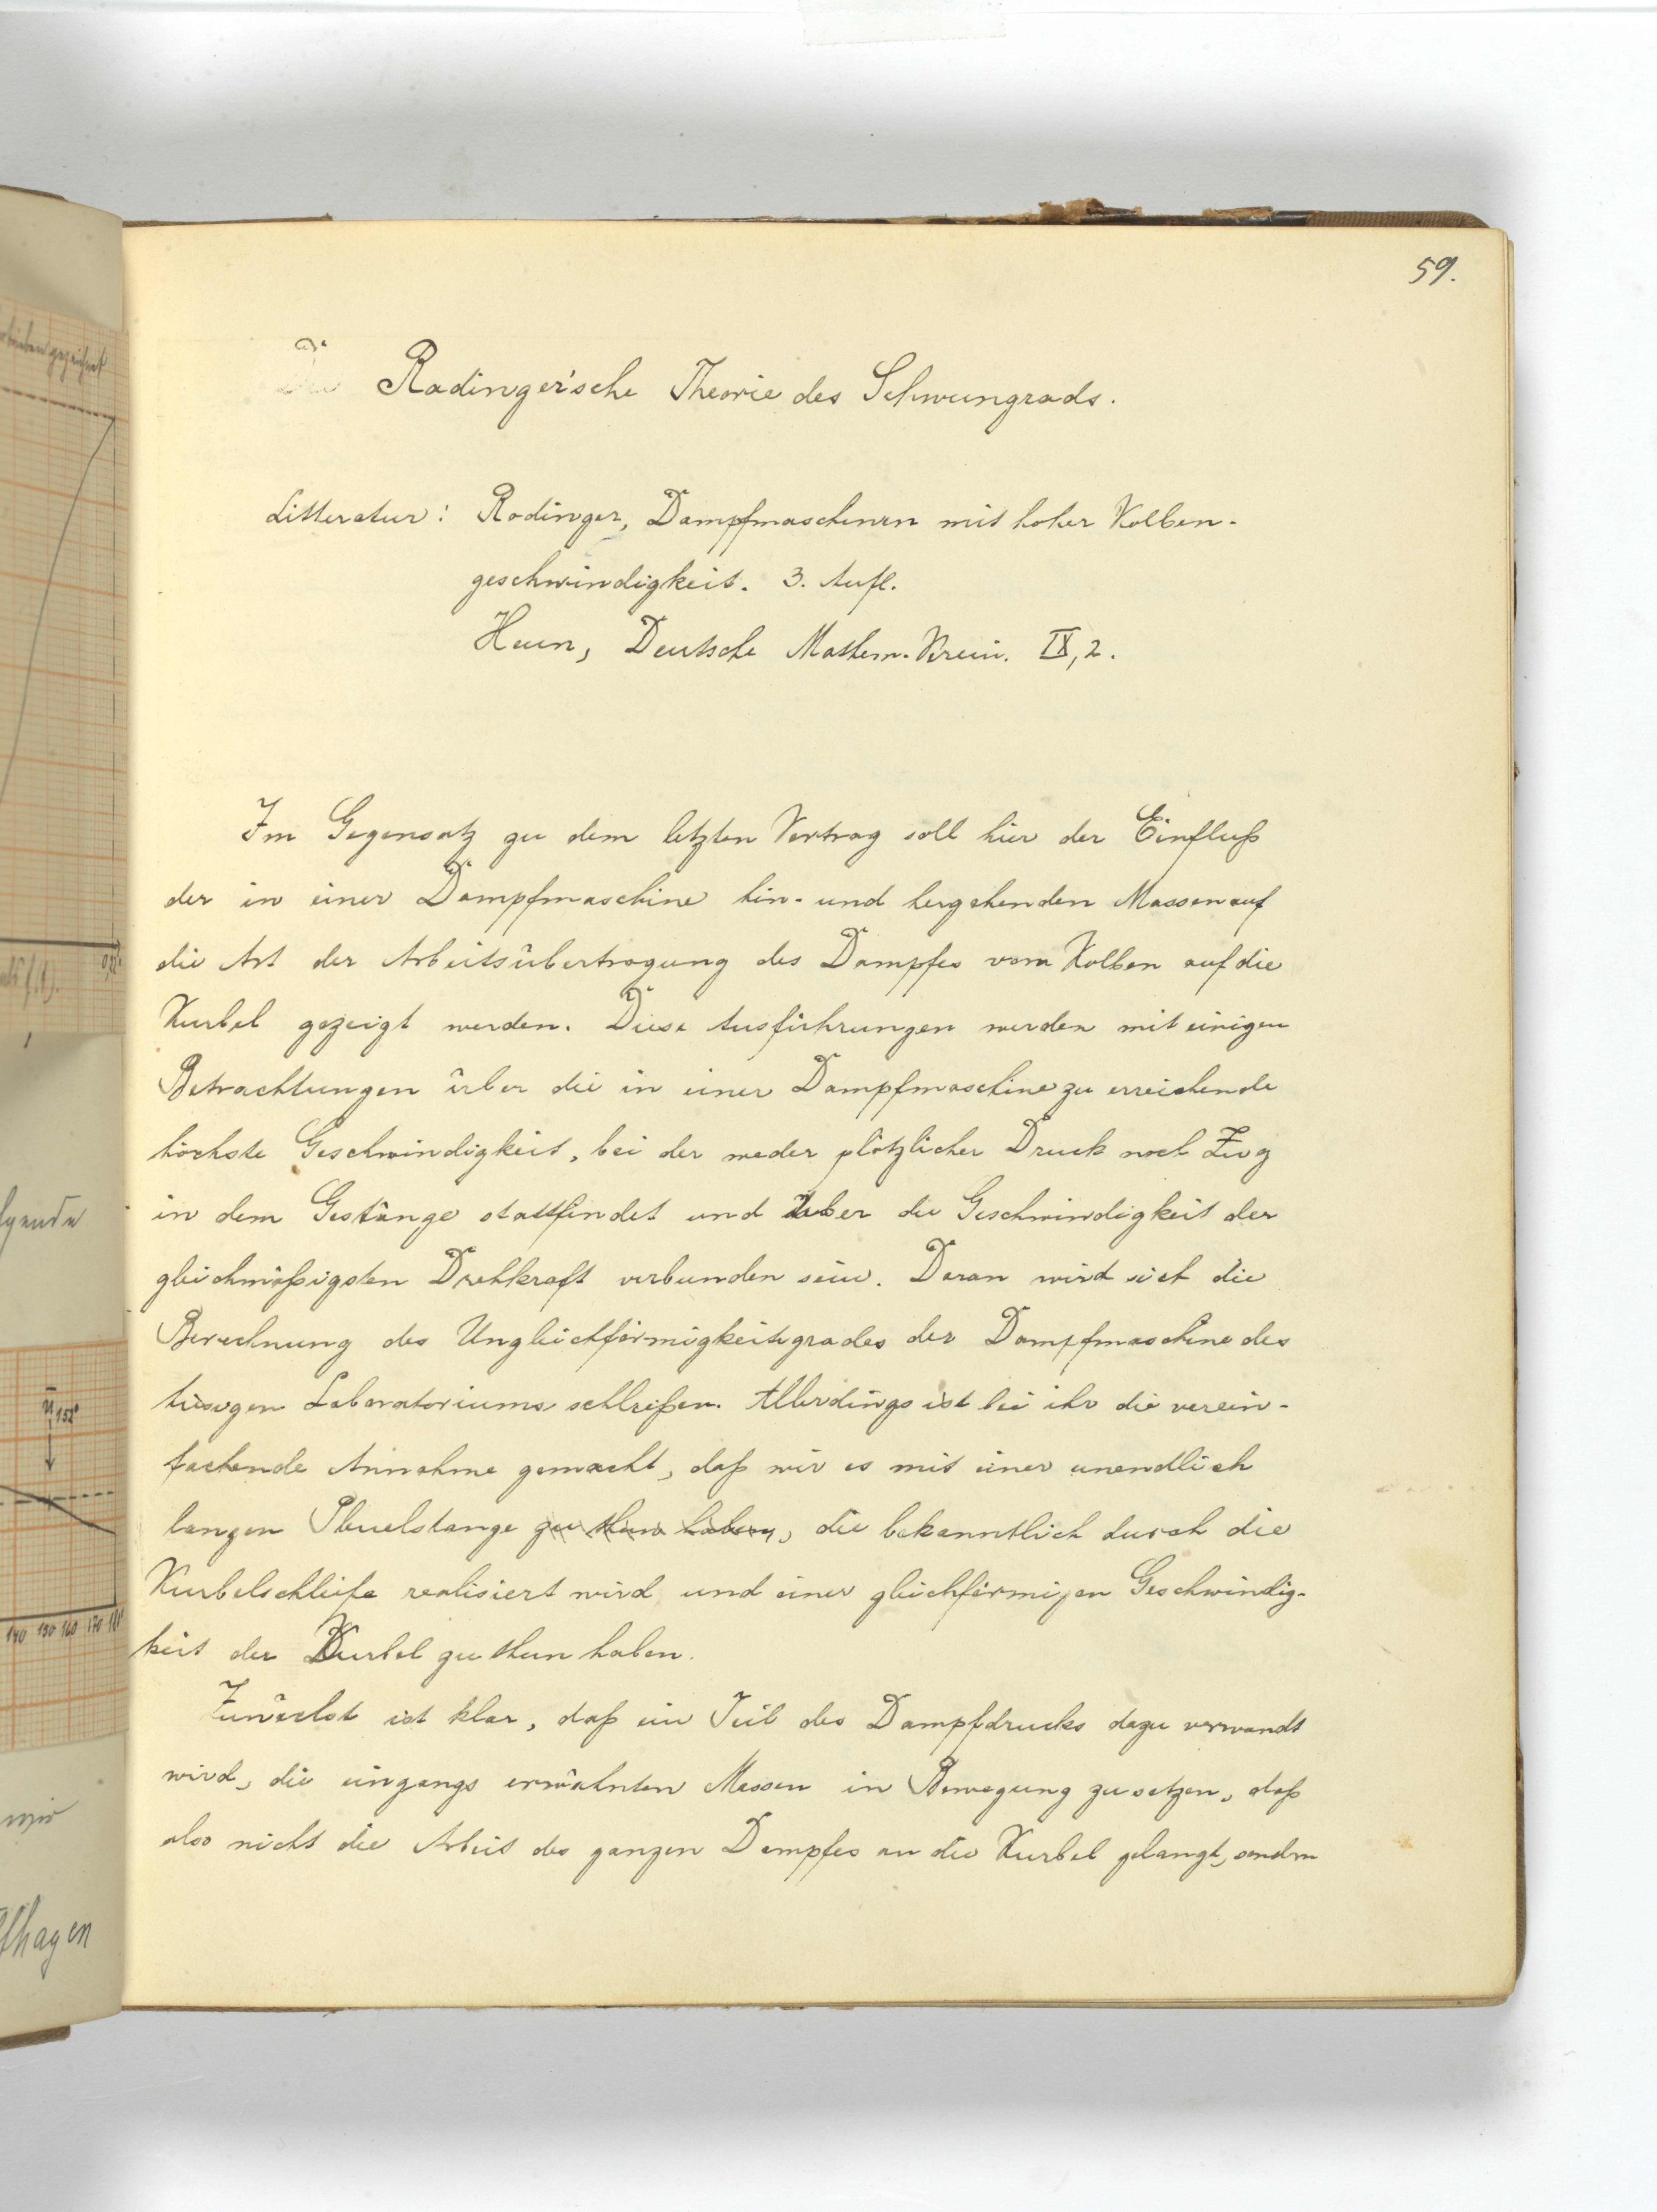 59.
Die Radinger'sche Theorie des Schwungrads.
Litteratur: Radinger, Dampfmaschinen mit hoher Kolben-
geschwindigkeit. 3. Aufl.
Heun, Deutsche Mathem. Verein. IX, 2.
Im Gegensatz zu dem letzten Vortrag soll hier der Einfluß
der in einer Dampfmaschine hin- und hergehenden Massen auf
die Art der Arbeitsübertragung des Dampfes vom Kolben auf die
Kurbel gezeigt werden. Diese Ausführungen werden mit einigen
Betrachtungen über die in einer Dampfmaschine zu erreichende
höchste Geschwindigkeit, bei der weder plötzlicher Druck noch Zug
in dem Gestänge stattfindet und über die Geschwindigkeit der
gleichmäßigsten Drehkraft verbunden sein. Daran wird sich die
Berechnung des Ungleichförmigkeitsgrades der Dampfmaschine des
hiesigen Laboratoriums schließen. Allerdings ist bei ihr die verein-
fachende Annahme gemacht, daß wir es mit einer unendlich
langen Pleuelstange zu thun haben, die bekanntlich durch die
Kurbelschleife realisiert wird und einer gleichförmigen Geschwindig-
keit der Kurbel zu thun haben.
Zunächst ist klar, daß ein Teil des Dampfdrucks dazu verwandt
wird, die eingangs erwähnten Massen in Bewegung zu setzen, daß
also nicht die Arbeit des ganzen Dampfes an die Kurbel gelangt, sondern
gezeichnet
lgende
152°
140 150 160 170 180
wir
fhagen